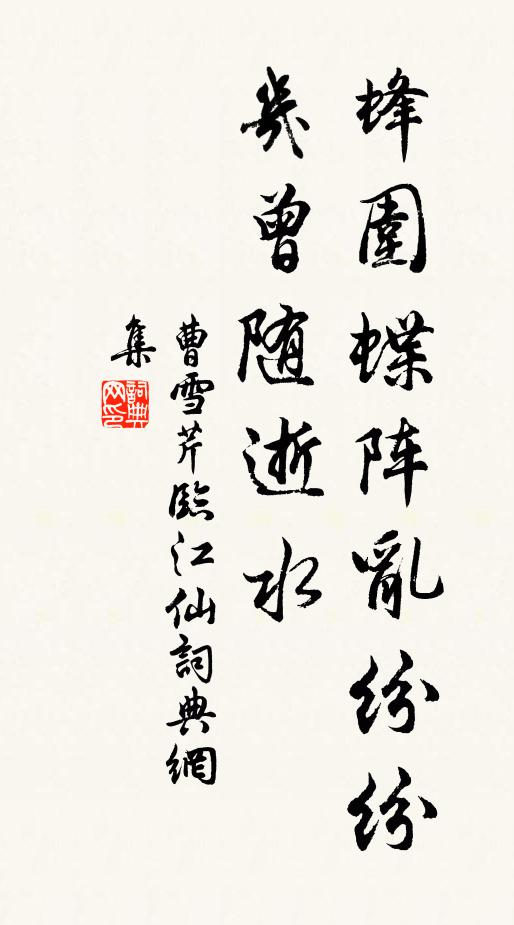 蜂圍蝶阵亂紛紛
幾曾随逝水
曹雪芹臨江仙詞典網
集
詞典网印